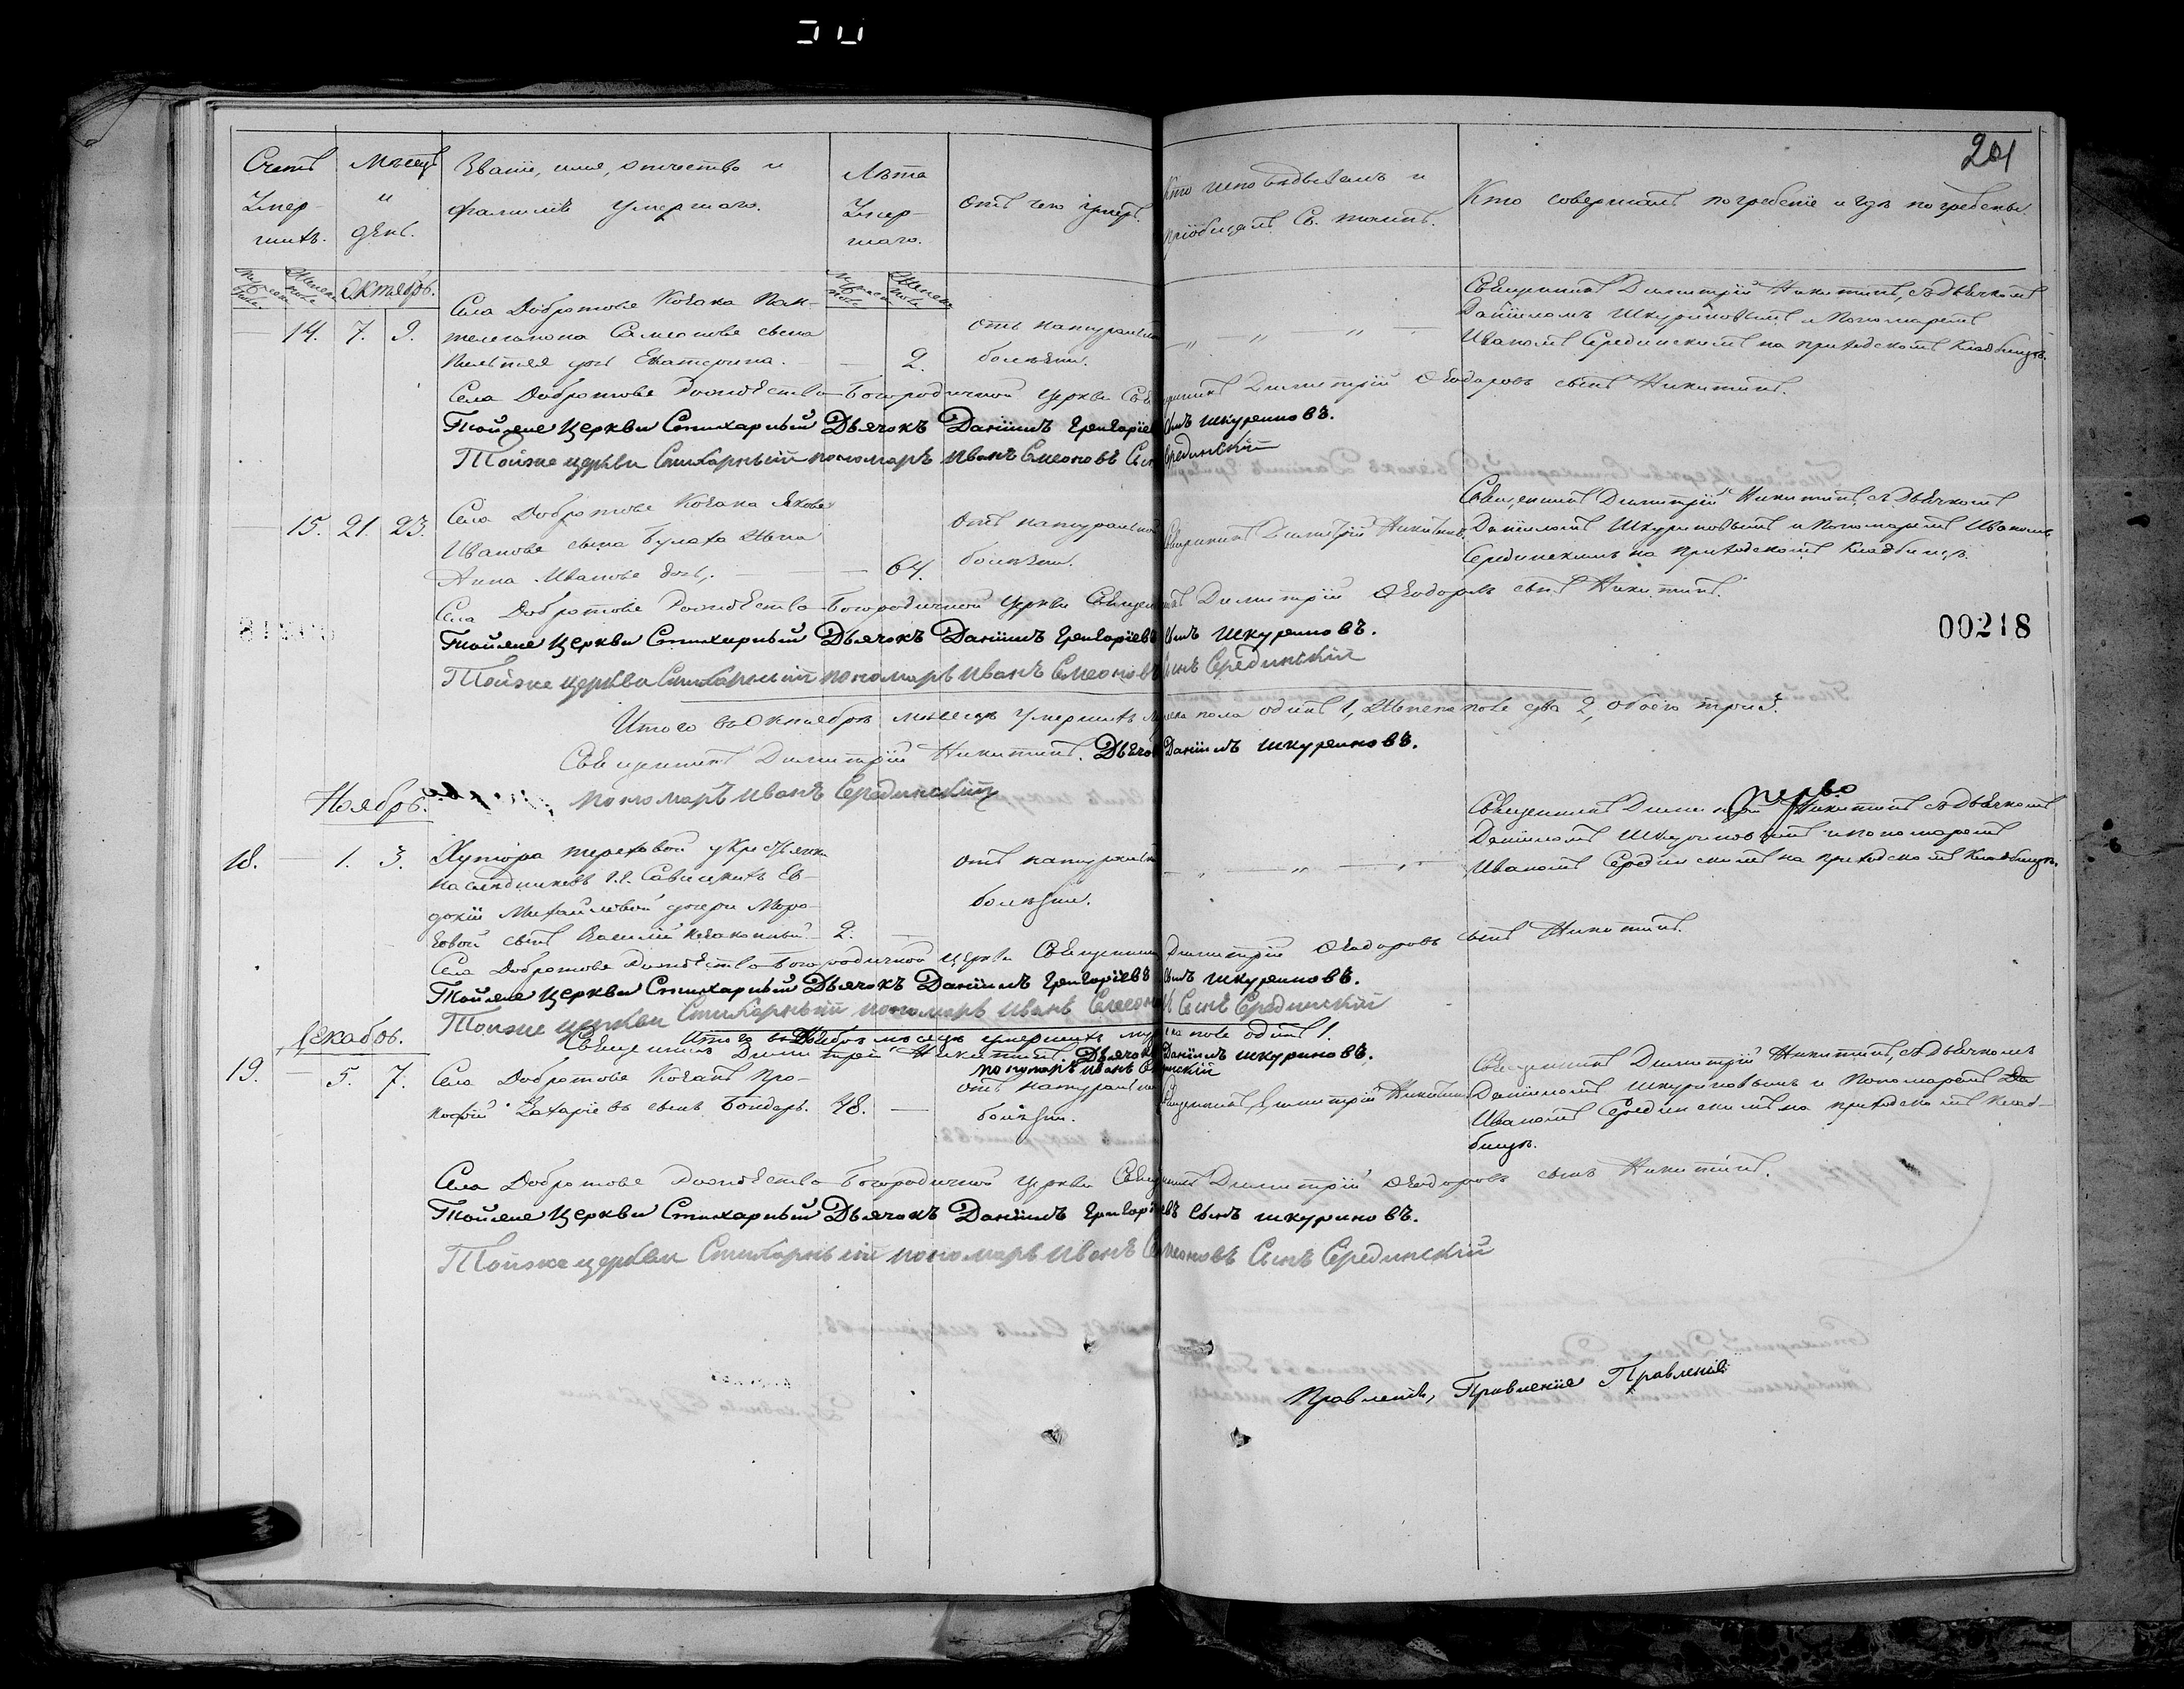 201
Счетъ Умершихъ.
Мѣсяцъ и день.
Званіе, имя, отчество и фамилія умершаго.
Лѣта Умершаго.
Отъ чего умеръ.
Кто исповѣдывалъ и пріобщалъ Св. таинъ.
Кто совершалъ погребеніе и гдѣ погребены.
Октябрь.
Села Добротова Козака Пан-
14. 7. 9. телеимона Самсонова сына
дочь Екатерина. — 2.
отъ натуральной
болѣзни.
Священникъ Димитрій Никитинъ, съ Дьячкомъ
Даніиломъ Шкуриновымъ и Пономаремъ
Иваномъ Серединскимъ на приходскомъ кладбищѣ.
Села Добротова Рождество-Богородичной церкви Священникъ Димитрій Ѳеодоровъ сынъ Никитинъ.
Тойже Церкви Стихарный Дьячокъ Даніилъ Григоріевъ сынъ Шкуриновъ.
Тойже церкви Стихарный пономарь Иванъ Симеоновъ Сынъ Серединскій
15. 21. 23. Села Добротова Козака Якова
Иванова сына Булаха жена
Анна Иванова дочь. — 64.
Отъ натуральной
болѣзни.
Священникъ Димитрій Никитинъ.
Священникъ Димитрій Никитинъ, съ Дьячкомъ
Даніиломъ Шкуриновымъ и Пономаремъ Иваномъ
Серединскимъ на приходскомъ Кладбищѣ.
Села Добротова Рождество-Богородичной церкви Священникъ Димитрій Ѳеодоровъ сынъ Никитинъ.
00218
Тойже Церкви Стихарный Дьячокъ Даніилъ Григоріевъ сынъ Шкуриновъ.
Тойже церкви Стихарный пономарь Иванъ Симеоновъ сынъ Серединскій
Итого въ Октябрѣ мѣсяцѣ умершихъ мужеска пола одинъ 1, женска пола два 2, обоего три 3.
Священникъ Димитрій Никитинъ. Дьячокъ Даніилъ Шкуриновъ.
пономарь Иванъ Серединскій
Ноябрь.
18. 1. 3. Хутора Терховой у Крестьянки
наслѣдниковъ г.г. Савицкихъ Ев-
докіи Михайловой дочери Моро-
зовой сынъ Василій незаконный. 2. —
отъ натуральной
болѣзни.
Священникъ Димитрій Никитинъ съ Дьячкомъ
Даніиломъ Шкуриновымъ и пономаремъ
Иваномъ Серединскимъ на приходскомъ Кладбищѣ.
Села Добротова Рождество-Богородичной церкви Священникъ Димитрій Ѳеодоровъ сынъ Никитинъ.
Тойже Церкви Стихарный Дьячокъ Даніилъ Григоріевъ сынъ Шкуриновъ.
Тойже церкви Стихарный пономарь Иванъ Симеоновъ Сынъ Серединскій
Итого въ Ноябрѣ мѣсяцѣ умершихъ мужеска пола одинъ 1.
Священникъ Димитрій Никитинъ. Дьячокъ Даніилъ Шкуриновъ.
пономарь Иванъ Серединскій
Декабрь.
19. — 5. 7. Села Добротова Козакъ Про-
кофій Захаріевъ сынъ Бондарь. 48. —
отъ натуральной
болѣзни.
Священникъ Димитрій Никитинъ
Священникъ Димитрій Никитинъ, съ Дьячкомъ
Даніиломъ Шкуриновымъ и Пономаремъ Да
Иваномъ Серединскимъ на приходскомъ Клад-
бищѣ.
Села Добротова Рождество-Богородичной церкви Священникъ Димитрій Ѳеодоровъ сынъ Никитинъ.
Тойже Церкви Стихарный Дьячокъ Даніилъ Григоріевъ Сынъ Шкуриновъ.
Тойже церкви Стихарный пономарь Иванъ Симеоновъ Сынъ Серединскій
Правленія, Правленіе Правленія